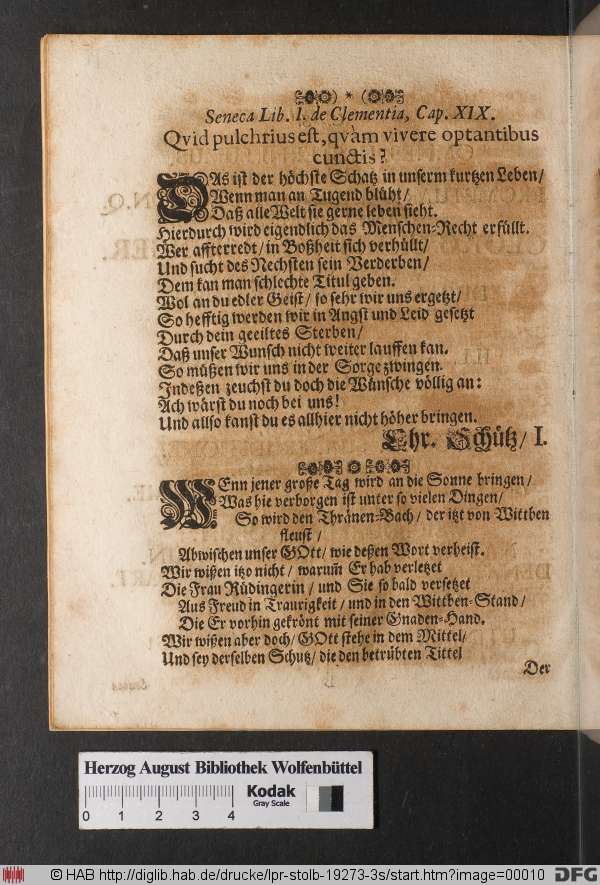 ) * (
Seneca Lib. I. de Clementia, Cap. XIX.
Qvid pulchrius est, qvàm vivere optantibus
cunctis?
DAs ist der höchste Schatz in unserm kurtzen Leben/
Wenn man an Tugend blüht/
Daß alle Welt sie gerne leben sieht.
Hierdurch wird eigendlich das Menschen-Recht erfüllt.
Wer affterredt/ in Boßheit sich verhüllt/
Und sucht des Nechsten sein Verderben/
Dem kan man schlechte Titul geben.
Wol an du edler Geist/ so sehr wir uns ergetzt/
So hefftig werden wir in Angst und Leid gesetzt
Durch dein geeiltes Sterben/
Daß unser Wunsch nicht weiter lauffen kan.
So müßen wir uns in der Sorge zwingen.
Indeßen zeuchst du doch die Wünsche völlig an:
Ach wärst du noch bei uns!
Und allso kanst du es allhier nicht höher bringen.
Chr. Schütz/ I.
WEnn jener große Tag wird an die Sonne bringen/
Was hie verborgen ist unter so vielen Dingen/
So wird den Thränen-Bach/ der itzt von Wittben
fleust/
Abwischen unser GOtt/ wie deßen Wort verheist.
Wir wißen itzo nicht/ warum̃ Er hab verletzet
Die Frau Rüdingerin/ und Sie so bald versetzet
Aus Freud in Traurigkeit/ und in den Wittben-Stand/
Die Er vorhin gekrönt mit seiner Gnaden-Hand.
Wir wißen aber doch/ GOtt stehe in dem Mittel/
Und sey derselben Schutz/ die den betrübten Tittel
Der
Herzog August Bibliothek Wolfenbüttel
0 1 2 3 4
Kodak
Gray Scale
© HAB http://diglib.hab.de/drucke/lpr-stolb-19273-3s/start.htm?image=00010
DFG